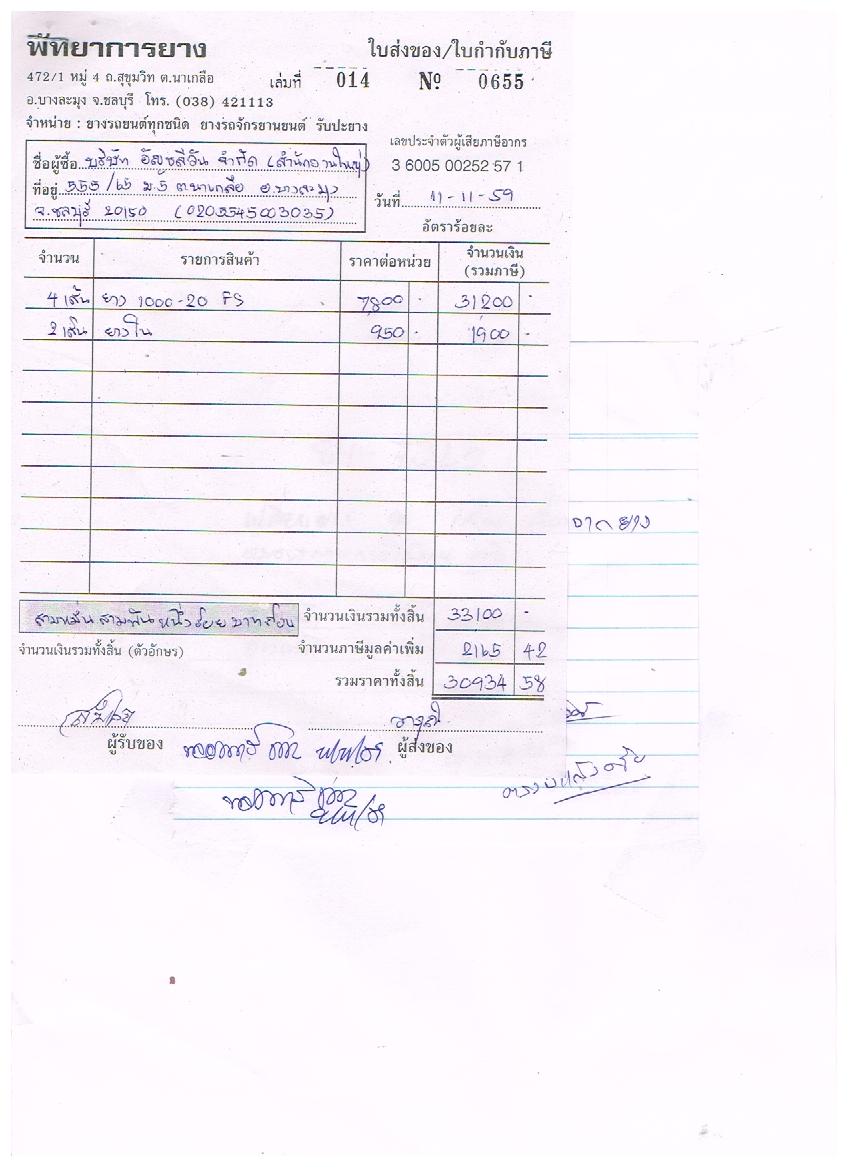 พัทยาการยาง ใบส่งของ/ใบกำกับภาษี
472/1 หมู่ 4 ถ.สุขุมวิท ต.นาเกลือ เล่มที่ 014 Nº 0655
อ.บางละมุง จ.ชลบุรี โทร. (038) 421113
จำหน่าย : ยางรถยนต์ทุกชนิด ยางรถจักรยานยนต์ รับปะยาง
เลขประจำตัวผู้เสียภาษีอากร
3 6005 00252 57 1
ชื่อผู้ซื้อ บริษัท จำกัด (สำนักงานใหญ่)
ที่อยู่ 555/65 ม.5 ต.นาเกลือ อ.บางละมุง
วันที่ 11-11-59
จ.ชลบุรี 20150 (0205545003035)
อัตราร้อยละ
จำนวน รายการสินค้า ราคาต่อหน่วย จำนวนเงิน
(รวมภาษี)
4 เส้น ยาง 1000-20 FS 7800 - 31200 -
2 เส้น ยางใน 950 - 1900 -
จากยาง
สามหมื่นสามพันหนึ่งร้อยบาทถ้วน จำนวนเงินรวมทั้งสิ้น 33100 -
จำนวนเงินรวมทั้งสิ้น (ตัวอักษร) จำนวนภาษีมูลค่าเพิ่ม 2165 42
รวมราคาทั้งสิ้น 30934 58
ผู้รับของ ผู้ส่งของ